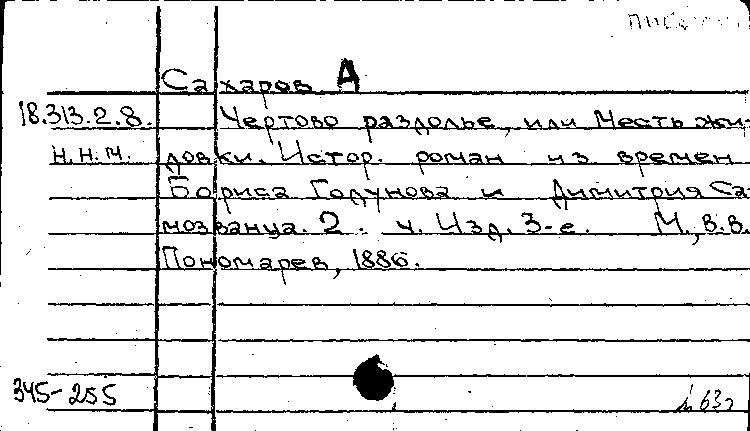 Сахаров А
18.313.2.8. Чертово раздолье, или Месть жи-
Н.Н.М. довки. Истор. роман из времен
Бориса Годунова и Димитрия Са-
мозванца. 2. ч. Изд. 3-е. М., В.В.
Пономарев, 1886.
345-255